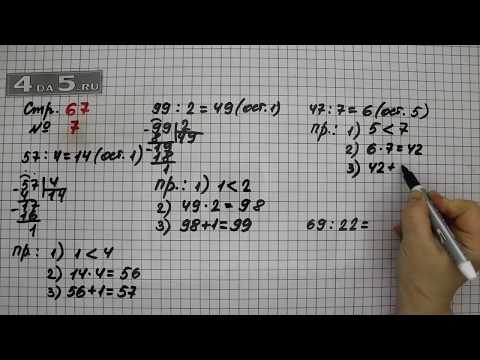 4 DA 5.RU
Стр. 67
№ 7
57 : 4 = 14 (ост. 1)
- 57 4
4 14
- 17
16
1
Пр.: 1) 1 < 4
2) 14 · 4 = 56
3) 56 + 1 = 57
99 : 2 = 49 (ост. 1)
- 99 2
8 49
- 19
18
1
Пр.: 1) 1 < 2
2) 49 · 2 = 98
3) 98 + 1 = 99
47 : 7 = 6 (ост. 5)
Пр.: 1) 5 < 7
2) 6 · 7 = 42
3) 42 +
69 : 22 =